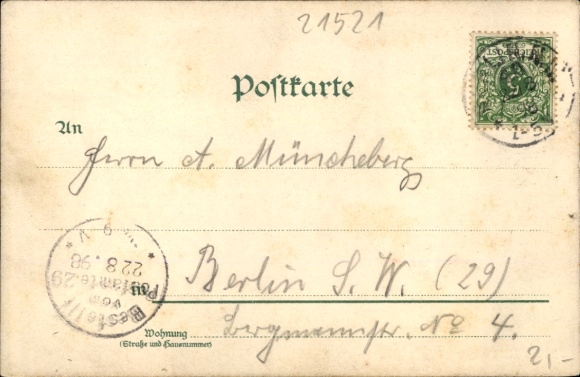 21521
Postkarte
An
Herrn A. Müncheberg
Berlin S.W. (29)
in
Wohnung
(Straße und Hausnummer)
Bergmannstr. No 4.
2,-
Bestellt
vom
Postamte 29
22.8.98
* 9 V *
REICHSPOST
5